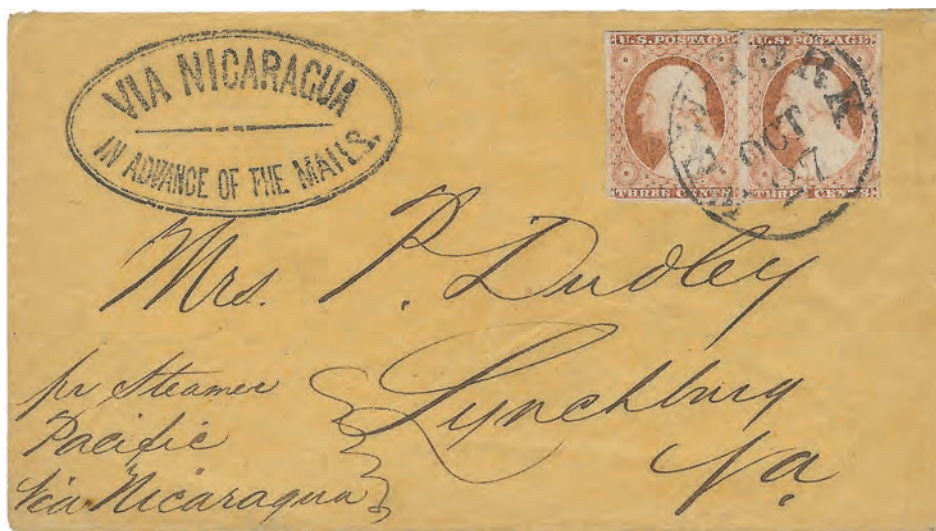 VIA NICARAGUA
IN ADVANCE OF THE MAILS.
U.S. POSTAGE U.S. POSTAGE
THREE CENTS THREE CENTS
NEW YORK
OCT
27
Mrs. P. Dudley
Lynchburg
Va
pr Steamer
Pacific
via Nicaragua